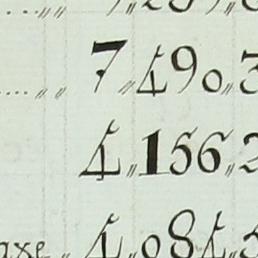 ....〃〃 7〃490〃3
4〃156〃2
axe 〃 4〃084〃